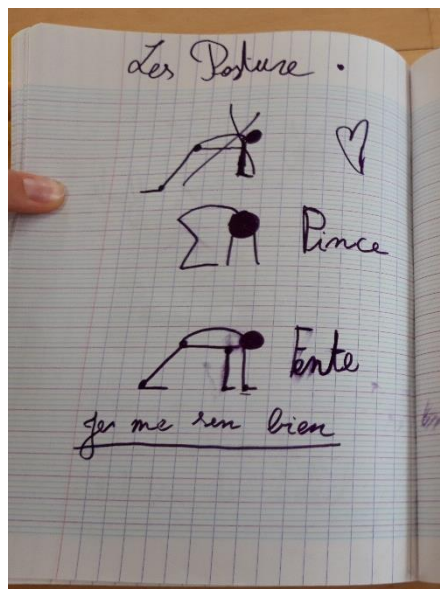 Les Posture .
Pince
Fente
Je me sen bien